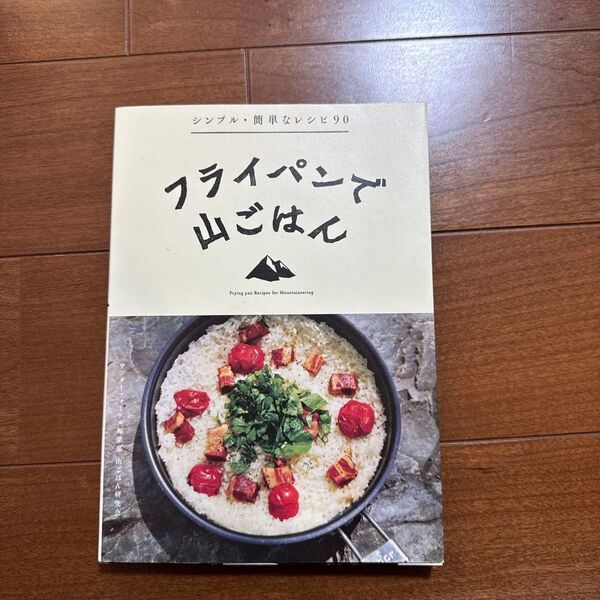 シンプル・簡単なレシピ90
フライパンで
山ごはん
Frying pan Recipes for Mountaineering
山ごはん研究会